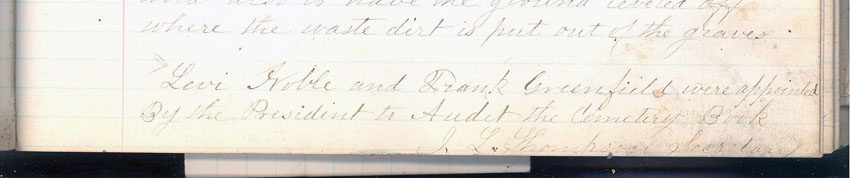 and also to have the ground leveled off
where the waste dirt is put out of the graves
Levi Noble and Frank Greenfield were appointed
By the President to Audet the Cemetery Book
J. L. Thompson Secretary